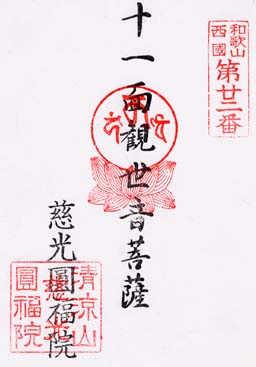 和歌山
西國
第廿二番
十一面観世音菩薩
慈光圓福院
清涼山
圓福院